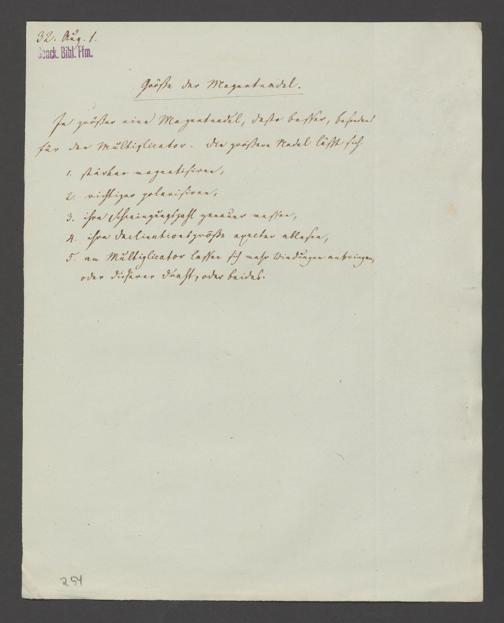 32. Aug. 1.
Senck. Bibl. Ffm.
Größe der Magnetnadel.
Je größer eine Magnetnadel, desto besser, besonders
für den Multiplicator. Die größere Nadel läßt sich
1. stärker magnetisiren,
2. richtiger polarisiren,
3. ihre Schwingungszahl genauer messen,
4. ihre Declinationsgröße exacter ablesen,
5. am Multiplicator lassen sich mehr Windungen anbringen,
oder dickerer Draht, oder beides.
254